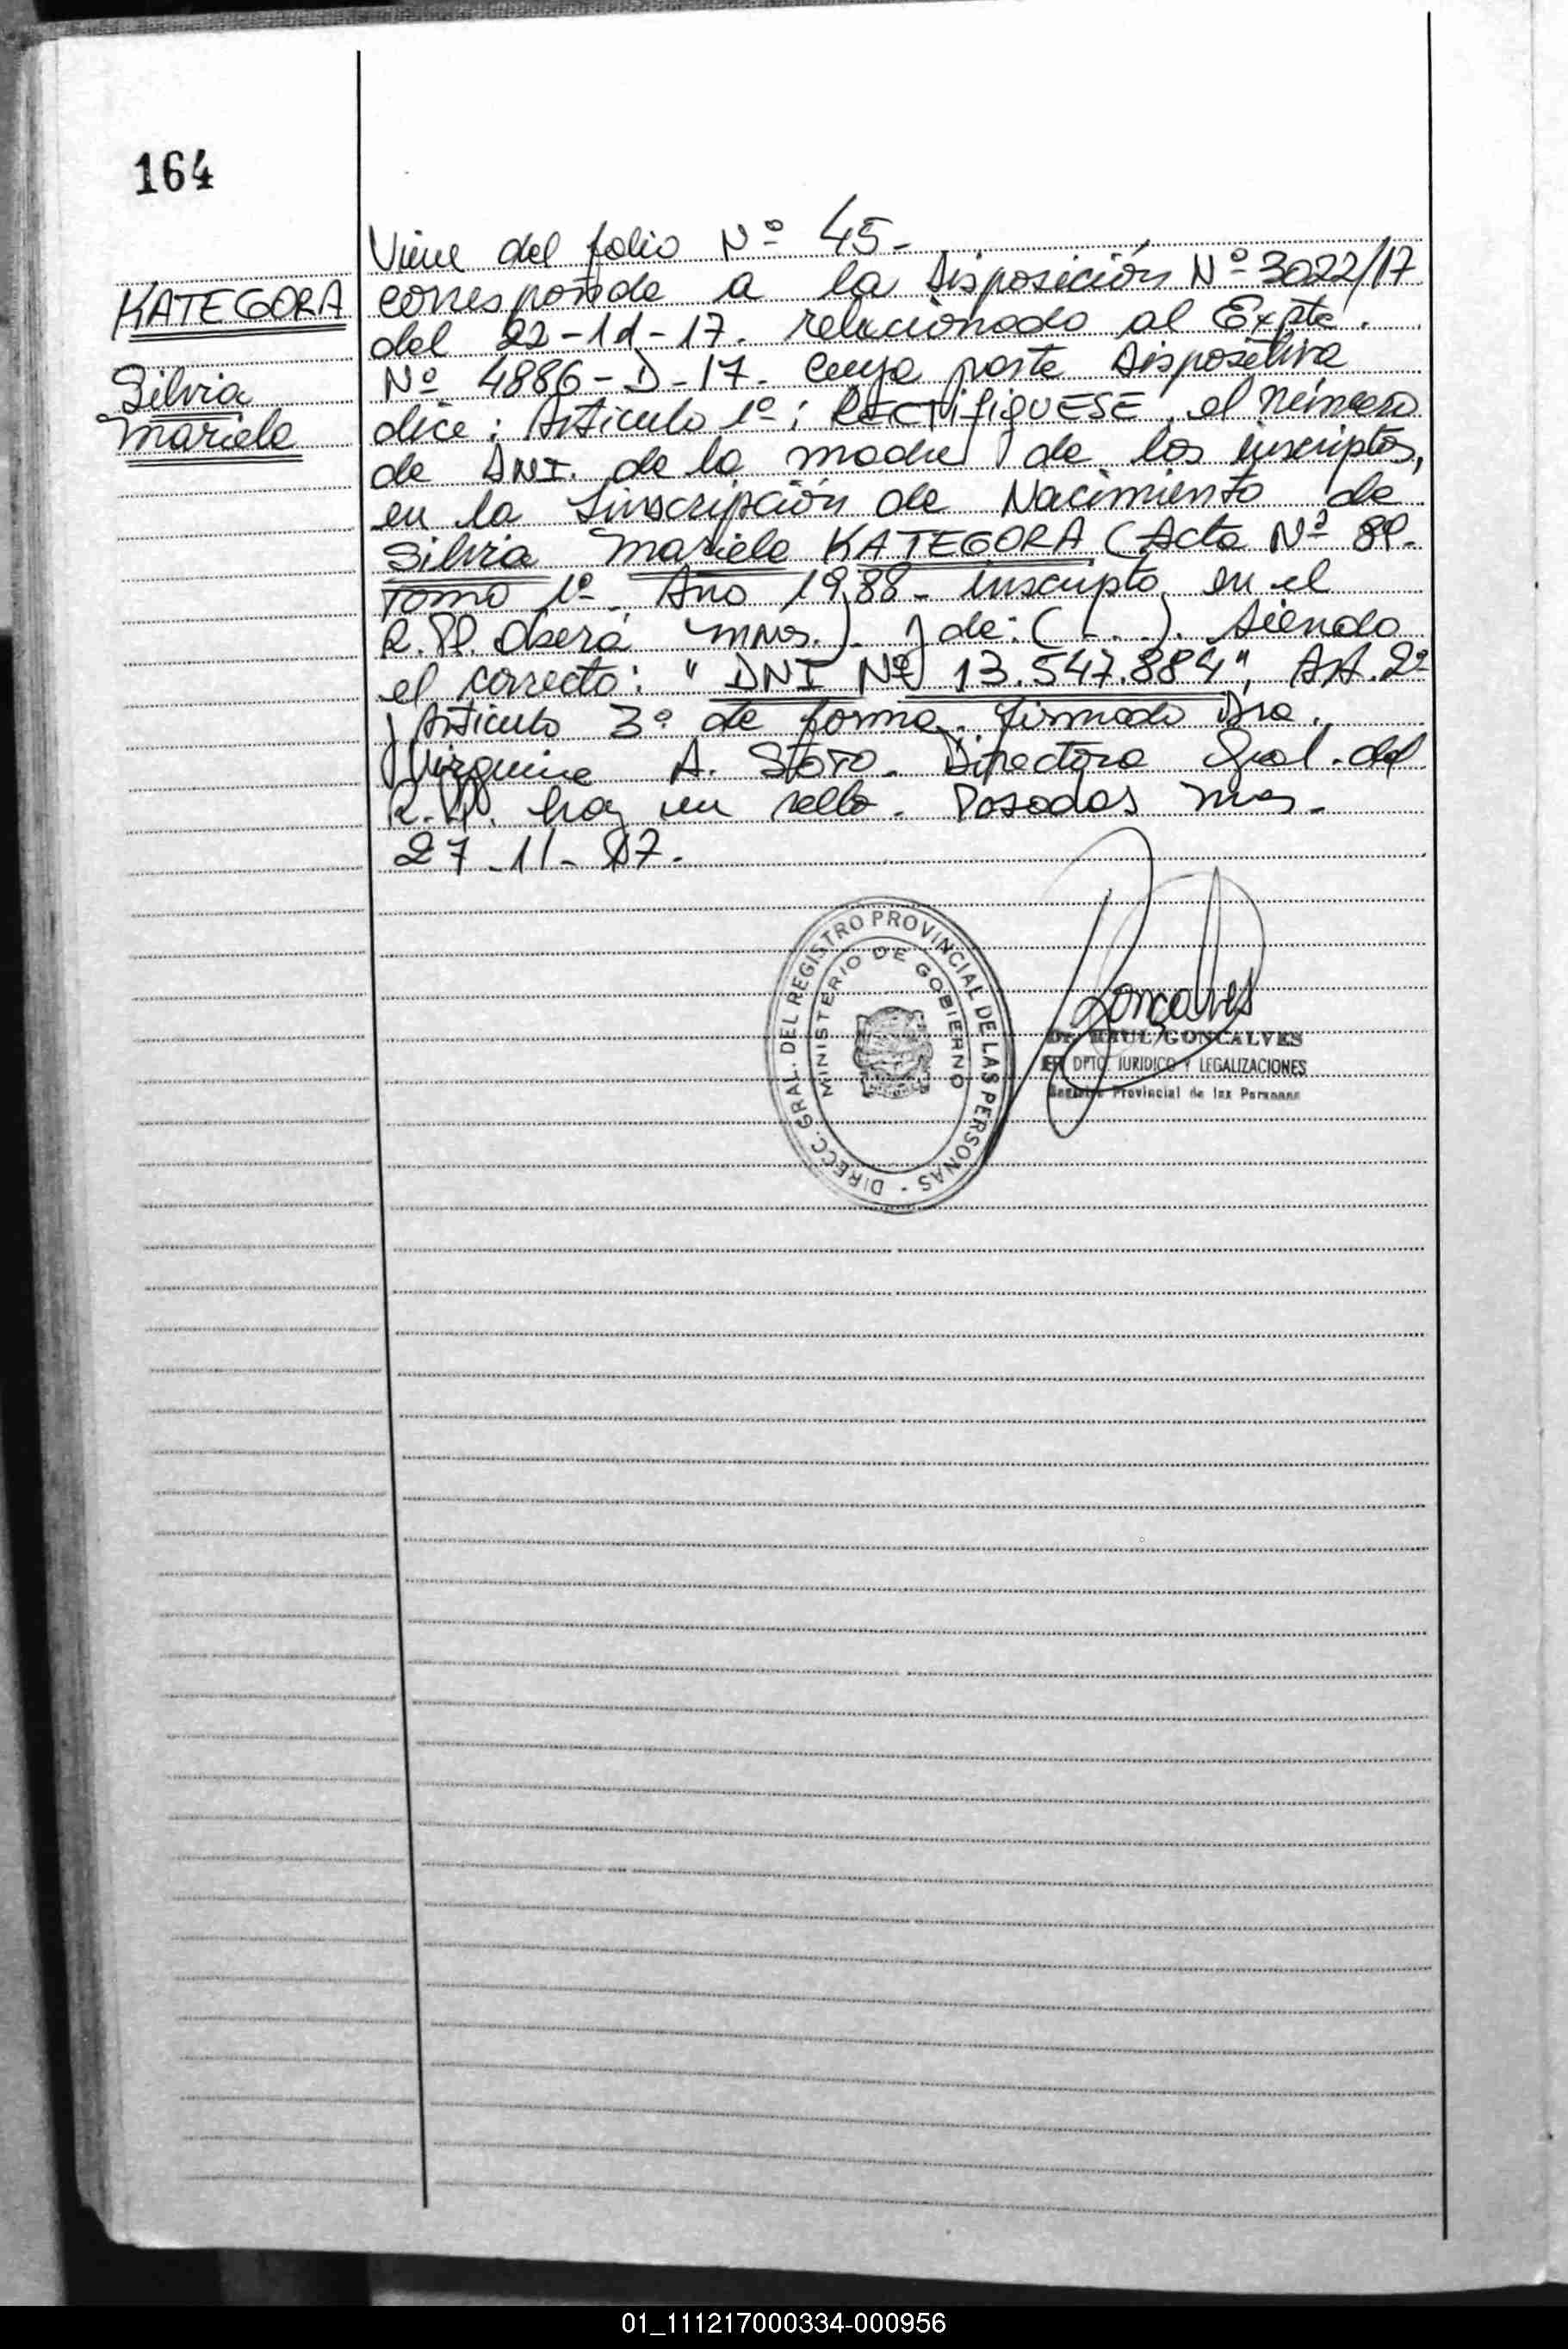 164
KATEGORA
Silvia
Mariela
Viene del folio Nº 45-
corresponde a la Disposición Nº 3022/17
del 22-11-17. relacionado al Expte.
Nº 4886-D-17. cuya parte Dispositiva
dice: Articulo 1º: RECTIFIQUESE, el número
de DNI. de la madre de los inscriptos,
en la Inscripción de Nacimiento de
Silvia Mariela KATEGORA (Acta Nº 89-
Tomo 1º. Año 1988- inscripta en el
R.P. Oberá Mnes.). y de: (...). siendo
el correcto: "DNI Nº 13.547.884", Art. 2º
y Articulo 3º de forma. firmado Dra.
A. Storo. Directora Gral. del
R.P. hay un sello. Posadas Mnes.
27-11-17.
DIRECC. GRAL. DEL REGISTRO PROVINCIAL DE LAS PERSONAS -
MINISTERIO DE GOBIERNO
Gonçalves
Dr. RAUL GONCALVES
DPTO. JURIDICO Y LEGALIZACIONES
Registro Provincial de las Personas
01_111217000334-000956